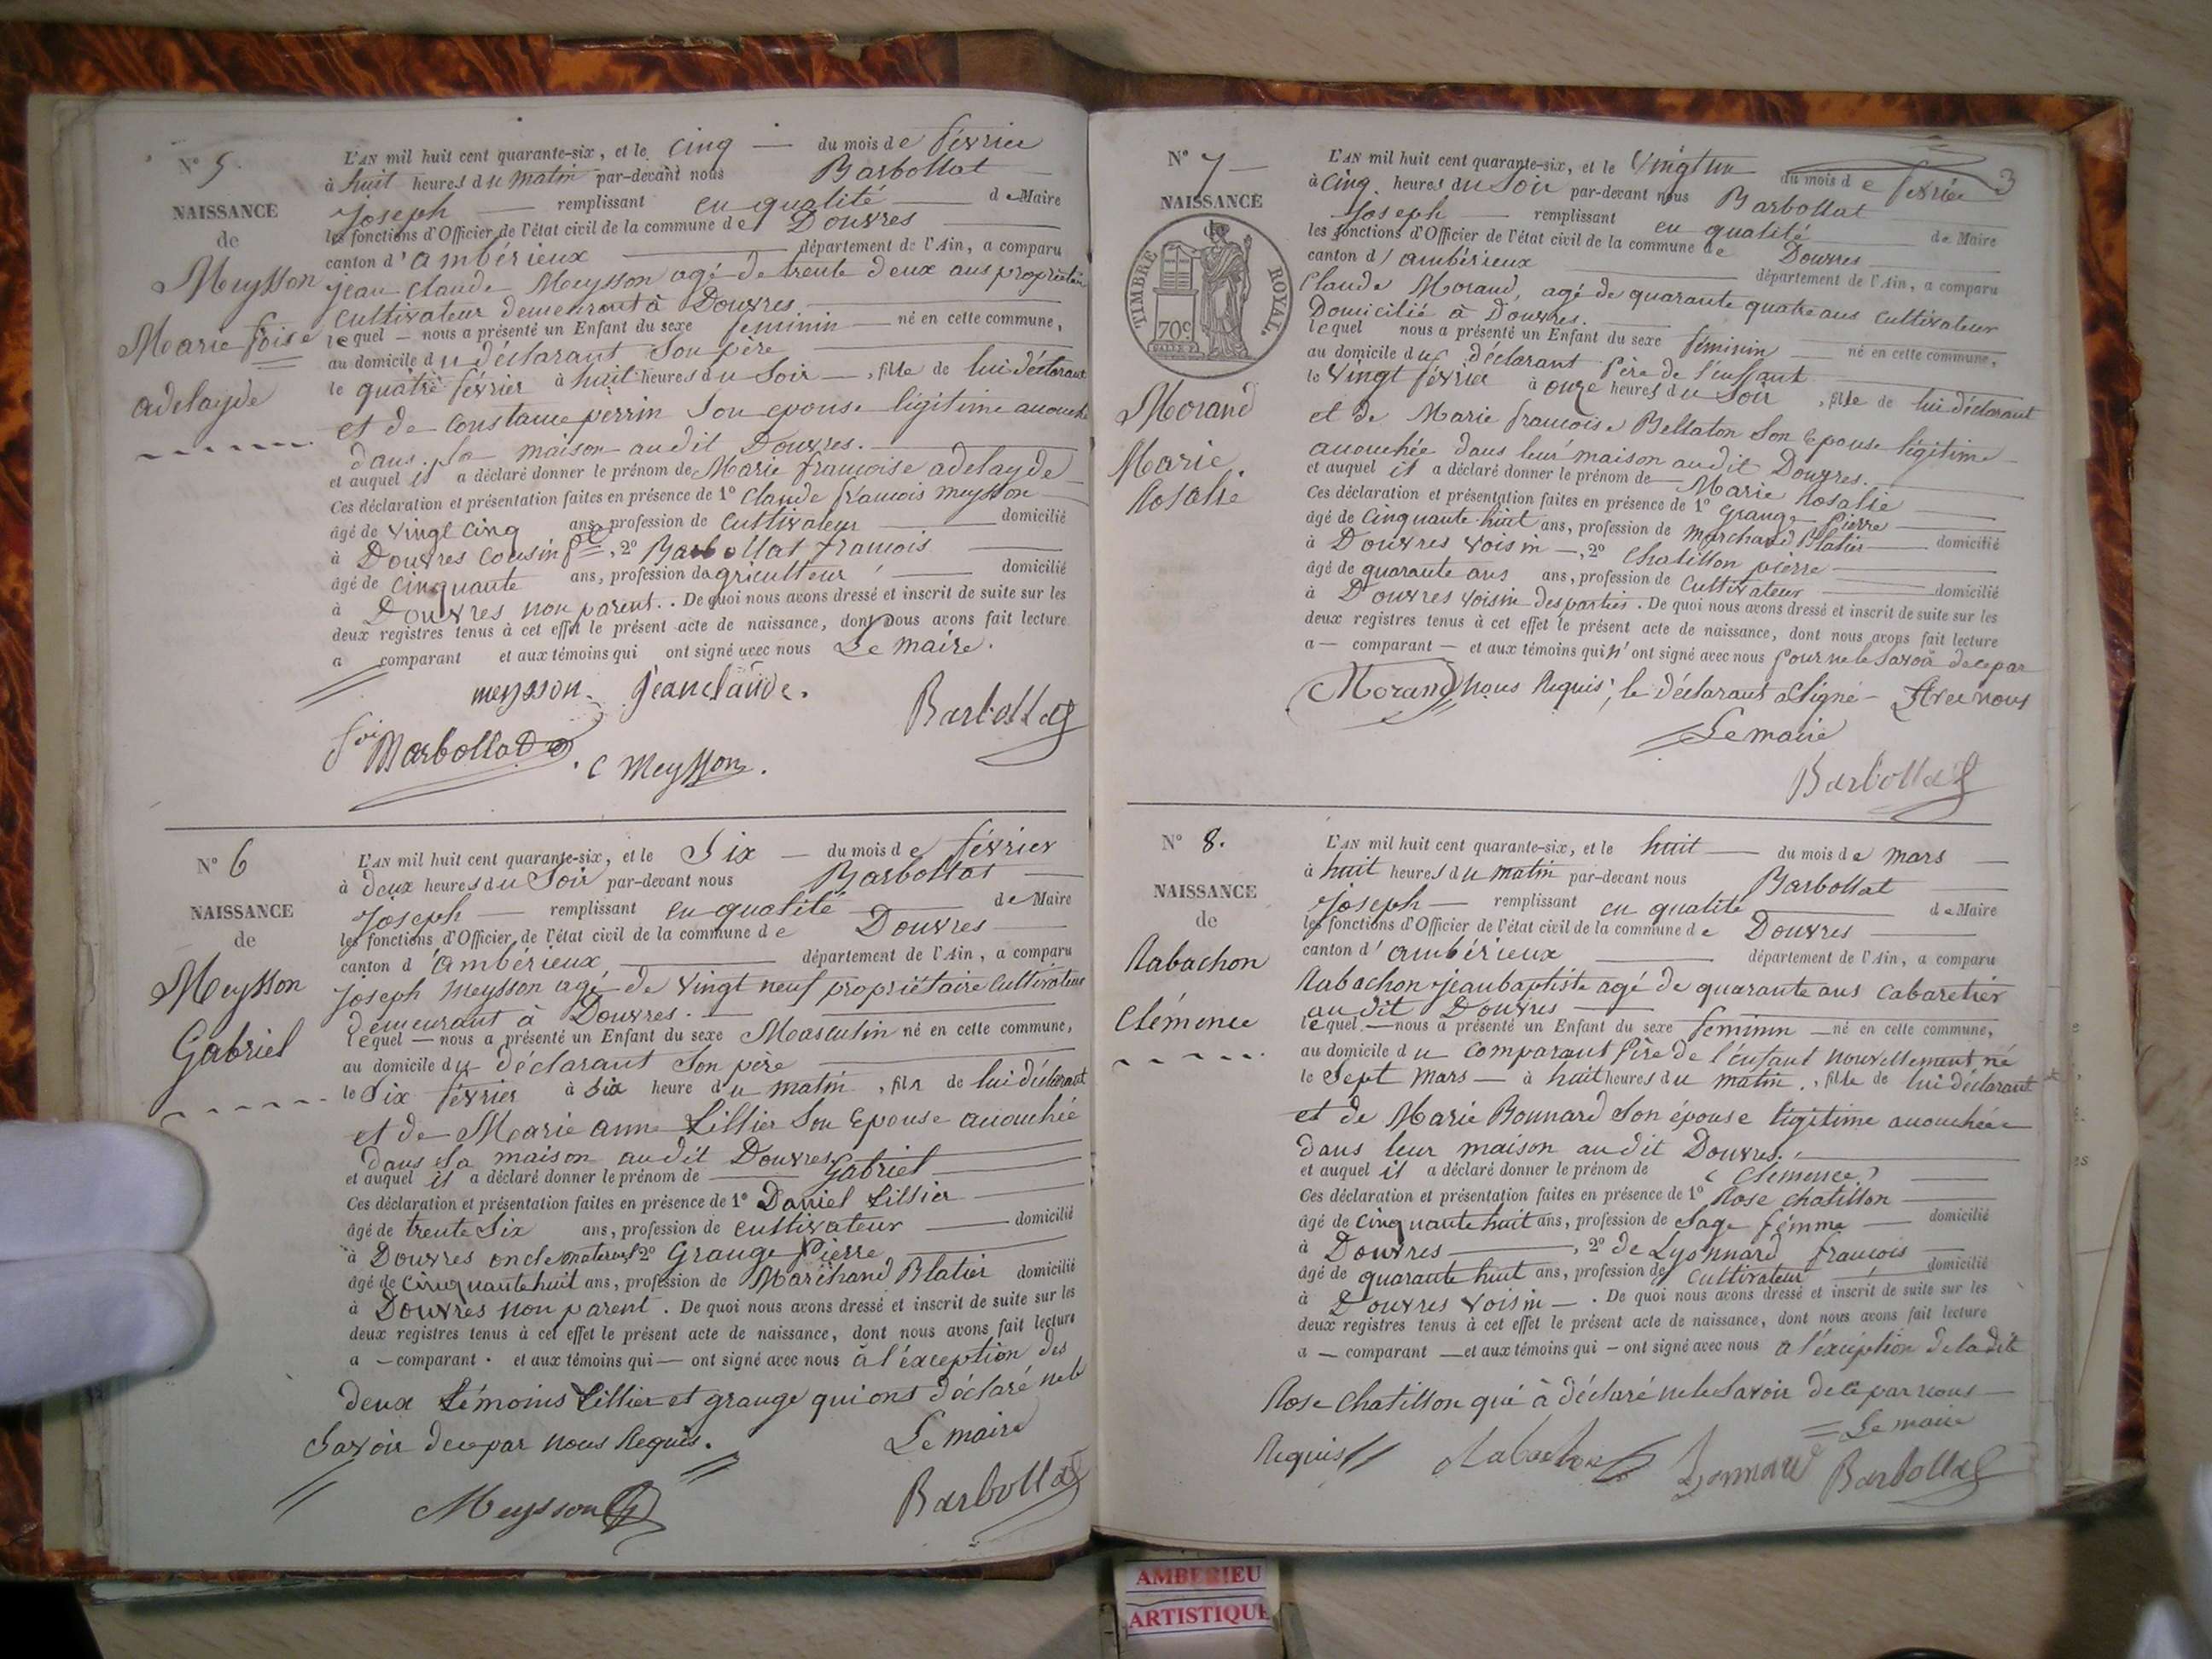 N° 5.
NAISSANCE
de
Meysson
Marie foise
adelayde
L'AN mil huit cent quarante-six, et le cinq — du mois de février
à huit heures du matin par-devant nous Barbollat
Joseph — remplissant en qualité — de Maire
les fonctions d'Officier de l'état civil de la commune de Douvres
canton d'ambérieux — département de l'Ain, a comparu
Jean Claude Meysson agé de trente deux ans propriétaire
cultivateur demeurant à Douvres
lequel — nous a présenté un Enfant du sexe feminin — né en cette commune,
au domicile du déclarant Son père
le quatre février à huit heures du Soir —, fille de lui déclarant
et de Constance perrin Son epouse légitime accouchée
dans sa maison audit Douvres.
et auquel il a déclaré donner le prénom de Marie françoise adelayde
Ces déclaration et présentation faites en présence de 1° Claude françois meysson
âgé de vingt cinq ans, profession de cultivateur — domicilié
à Douvres cousin, 2° Barbollat françois
âgé de cinquante ans, profession d'agriculteur — domicilié
à Douvres non parent. De quoi nous avons dressé et inscrit de suite sur les
deux registres tenus à cet effet le présent acte de naissance, dont nous avons fait lecture
a comparant et aux témoins qui ont signé avec nous Le maire.
meysson Jean claude.
Barbollat
foi Barbollat
C Meysson.
N° 6
NAISSANCE
de
Meysson
Gabriel
L'AN mil huit cent quarante-six, et le Six — du mois de février
à deux heures du Soir par-devant nous Barbollat
Joseph — remplissant en qualité — de Maire
les fonctions d'Officier de l'état civil de la commune de Douvres
canton d'ambérieux — département de l'Ain, a comparu
Joseph Meysson agé de vingt neuf propriétaire cultivateur
demeurant à Douvres.
lequel — nous a présenté un Enfant du sexe Masculin né en cette commune,
au domicile du déclarant Son père
le Six février à six heure du matin, fils de lui déclarant
et de Marie anne Lillier Son Epouse accouchée
dans sa maison audit Douvres
et auquel il a déclaré donner le prénom de — Gabriel
Ces déclaration et présentation faites en présence de 1° Daniel Lillier
âgé de trente Six ans, profession de cultivateur — domicilié
à Douvres oncle maternel 2° Grange Pierre
âgé de cinquante huit ans, profession de Marchand Blatier domicilié
à Douvres non parent. De quoi nous avons dressé et inscrit de suite sur les
deux registres tenus à cet effet le présent acte de naissance, dont nous avons fait lecture
a — comparant. et aux témoins qui — ont signé avec nous à l'exception des
deux témoins Lillier et grange qui ont déclaré ne le
Savoir de ce par nous Requis.
Le maire
Meysson
Barbollat
3
N° 7
NAISSANCE
TIMBRE ROYAL
70c
Morand
Marie
Rosalie
L'AN mil huit cent quarante-six, et le Vingt un du mois de février
à cinq heures du Soir par-devant nous Barbollat
Joseph — remplissant en qualité de Maire
les fonctions d'Officier de l'état civil de la commune de Douvres
canton d'ambérieux — département de l'Ain, a comparu
Claude Morand, agé de quarante quatre ans cultivateur
Domicilié à Douvres.
lequel nous a présenté un Enfant du sexe féminin — né en cette commune,
au domicile du déclarant Père de l'enffant
le Vingt février à onze heures du Soir, fille de lui déclarant
et de Marie françoise Bellaton Son Epouse légitime
accouchée dans leur maison audit Douvres.
et auquel il a déclaré donner le prénom de — Marie Rosalie
Ces déclaration et présentation faites en présence de 1° Grange Pierre
âgé de cinquante huit ans, profession de Marchand Blatier — domicilié
à Douvres voisin —, 2° Chatillon pierre
âgé de quarante ans ans, profession de Cultivateur — domicilié
à Douvres voisin des parties. De quoi nous avons dressé et inscrit de suite sur les
deux registres tenus à cet effet le présent acte de naissance, dont nous avons fait lecture
a — comparant — et aux témoins qui n'ont signé avec nous pour ne le Savoir de ce par
Morand nous Requis, le déclarant a Signé — Avec nous
Le maire
Barbollat
N° 8.
NAISSANCE
de
Rabachon
Clémence
L'AN mil huit cent quarante-six, et le huit — du mois de mars
à huit heures du matin par-devant nous Barbollat
Joseph — remplissant en qualité — de Maire
les fonctions d'Officier de l'état civil de la commune de Douvres
canton d'ambérieux — département de l'Ain, a comparu
Rabachon jean baptiste agé de quarante ans cabaretier
audit Douvres
lequel — nous a présenté un Enfant du sexe feminin — né en cette commune,
au domicile du comparant Père de l'enfant nouvellement né
le Sept Mars — à huit heures du matin, fille de lui déclarant
et de Marie Bonnard Son épouse légitime accouchée
dans leur maison audit Douvres.
et auquel il a déclaré donner le prénom de (Clemence)
Ces déclaration et présentation faites en présence de 1° Rose Chatillon
âgé de cinquante huit ans, profession de Sage femme — domicilié
à Douvres —, 2° de Lyonnard françois
âgé de quarante huit ans, profession de Cultivateur — domicilié
à Douvres voisin —. De quoi nous avons dressé et inscrit de suite sur les
deux registres tenus à cet effet le présent acte de naissance, dont nous avons fait lecture
a — comparant — et aux témoins qui — ont signé avec nous a l'exception de la dite
Rose Chatillon qui à déclaré ne le Savoir de ce par nous
Requis
Le maire
Rabachon
Barbollat
AMBERIEU
ARTISTIQUE